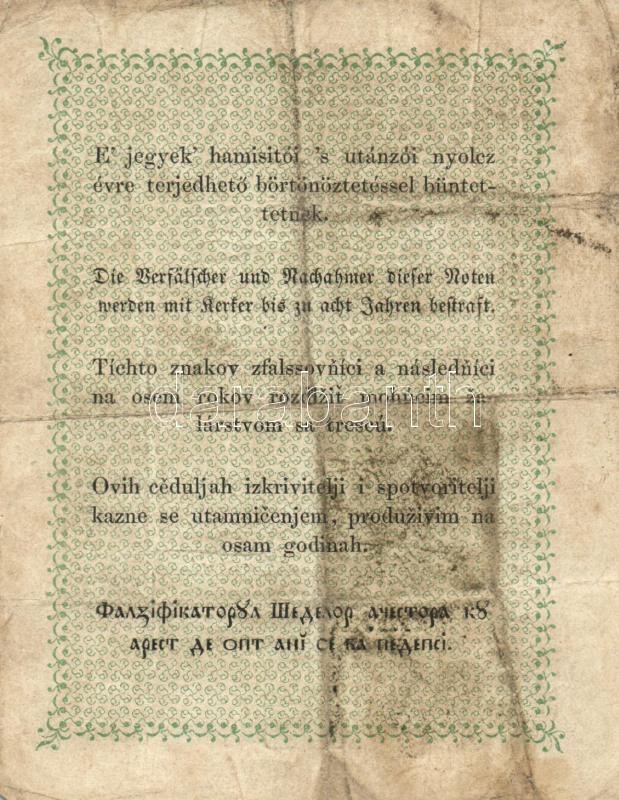 E' jegyek' hamisitói 's utánzói nyolcz
évre terjedhető börtönöztetéssel büntet-
tetnek.
Die Verfälscher und Nachahmer dieser Noten
werden mit Kerker bis zu acht Jahren bestraft.
Tíchto znakov zfalssovňíci a následňíci
na osem rokov rozdlžiť mohúcím ža-
lárstvom sa trescú.
darabanth
Ovih cěduljah izkrivitelji i spotvoritelji
kazne se utamničenjem, produživim na
osam godinah.
Фалзіфікаторꙋл Шеделор ачестора кꙋ
арест де опт ані се ва педепсі.